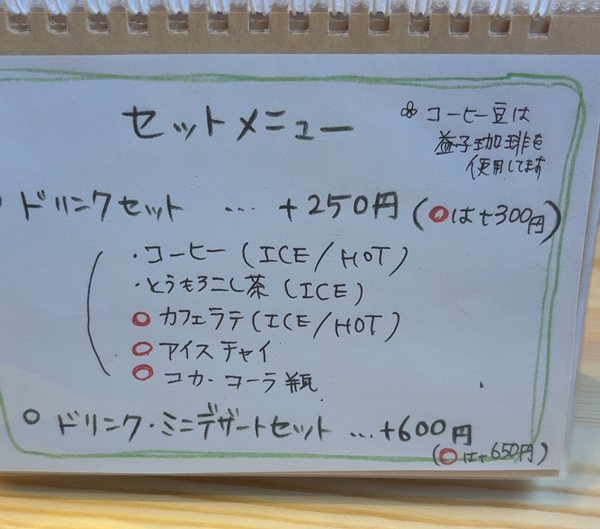 セットメニュー
コーヒー豆は
益子珈琲を
使用してます
ドリンクセット … +250円 (○は+300円)
・コーヒー (ICE/HOT)
・とうもろこし茶 (ICE)
○ カフェラテ (ICE/HOT)
○ アイスチャイ
○ コカ・コーラ瓶
○ ドリンク・ミニデザートセット …+600円
(○は+650円)